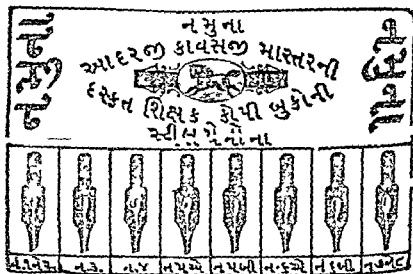 નમુના
આદરજી કાવસજી માસ્તરની
દસ્કત શિક્ષક કોપી બુકોની
સ્ટીલપેનોના
નમુના
નમુના
નં.૩. નં.૪ નં૫એ નં૫બી નં૬એ નં૬બી